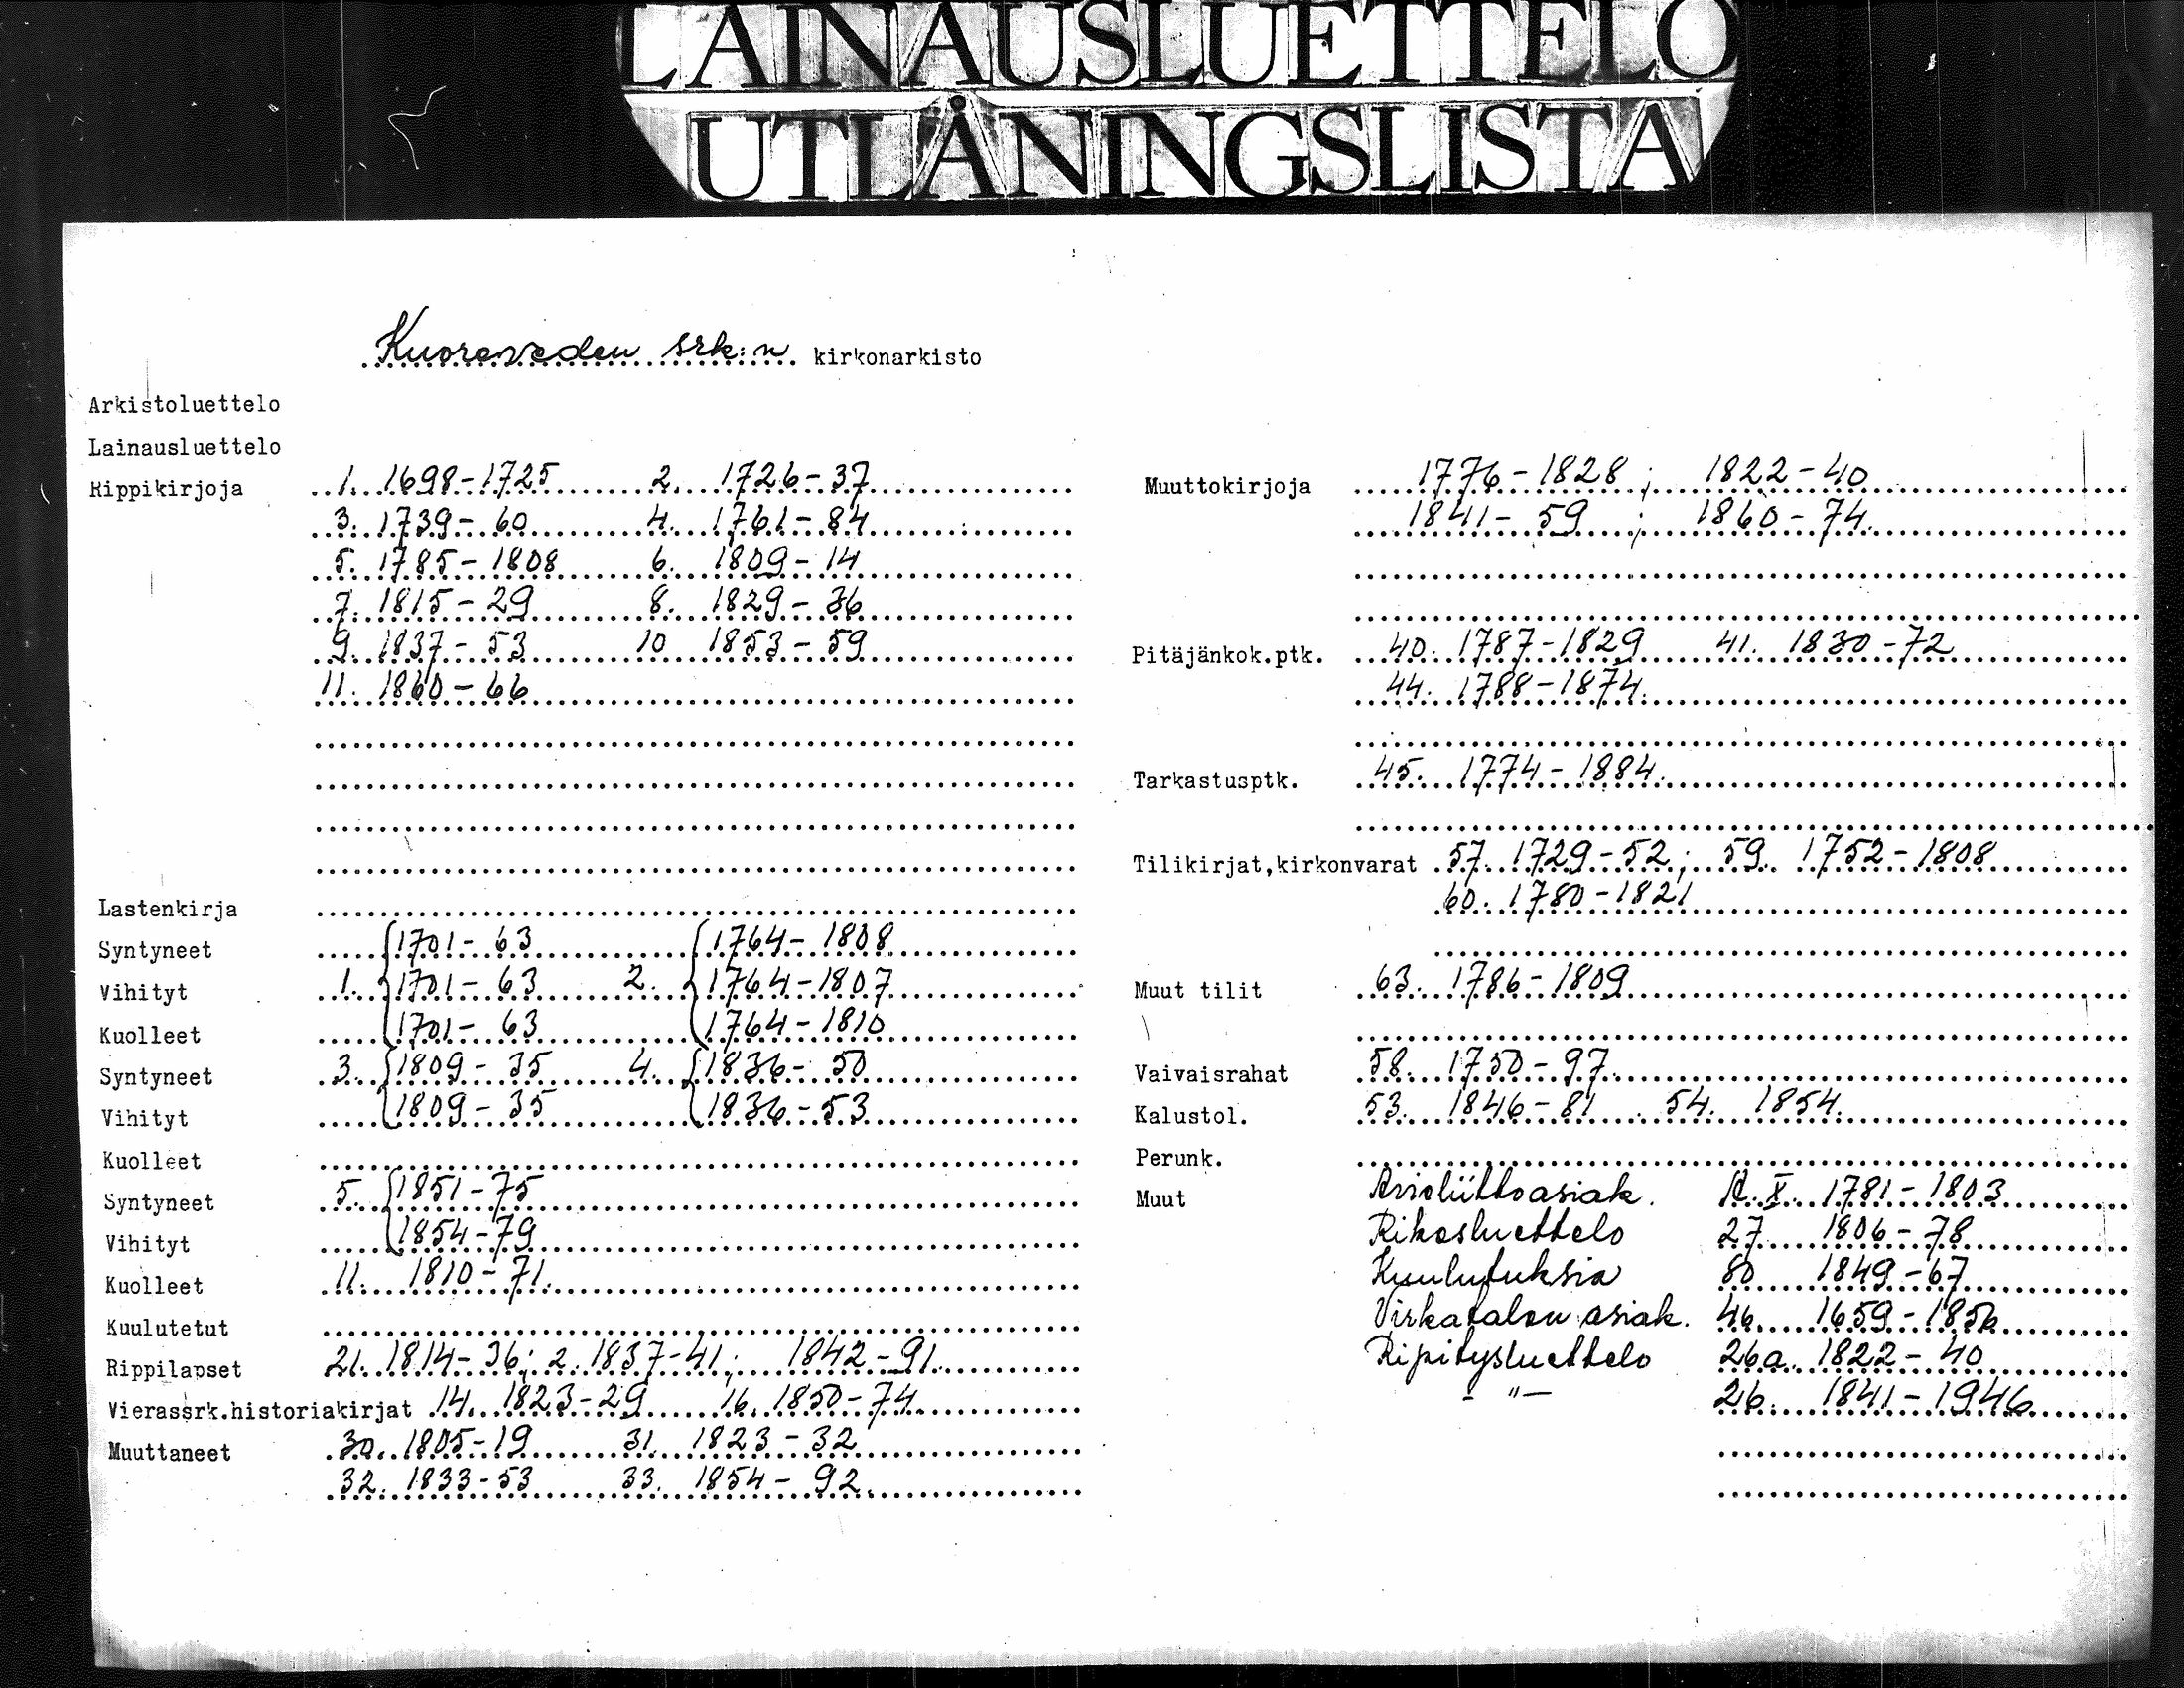 LAINAUSLUETTELO
UTLÅNINGSLISTA
Kuoreveden srk:n kirkonarkisto
Arkistoluettelo
Lainausluettelo
Rippikirjoja 1. 1698-1725 2. 1726-37
3. 1739-60 4. 1761-84
5. 1785-1808 6. 1809-14
7. 1815-29 8. 1829-36
9. 1837-53 10 1853-59
11. 1860-66
Lastenkirja
Syntyneet 1701-63 1764-1808
Vihityt 1. 1701-63 2. 1764-1807
Kuolleet 1701-63 1764-1810
Syntyneet 3. 1809-35 4. 1836-50
Vihityt 1809-35 1836-53
Kuolleet
Syntyneet 5. 1851-75
Vihityt 1854-79
Kuolleet 11. 1810-71.
Kuulutetut
Rippilapset 21. 1814-36; 2. 1837-41; 1842-91.
Vierassrk.historiakirjat 14. 1823-29 16. 1850-74
Muuttaneet 30. 1805-19 31. 1823-32
32. 1833-53 33. 1854-92.
Muuttokirjoja 1776-1828; 1822-40
1841-59; 1860-74.
Pitäjänkok.ptk. 40. 1787-1829 41. 1830-72
44. 1788-1874.
Tarkastusptk. 45. 1774-1884.
Tilikirjat,kirkonvarat 57. 1729-52; 59. 1752-1808
60. 1780-1821
Muut tilit 63. 1786-1809
Vaivaisrahat 58. 1750-97.
Kalustol. 53. 1846-81. 54. 1854.
Perunk.
Muut Avioliittoasiak. A.X. 1781-1803
Rikosluettelo 27 1806-78
Kuulutuksia 80 1849-67
Virkatalon asiak. 46. 1659-1856
Ripitysluettelo 26a. 1822-40
-"- 26. 1841-1946